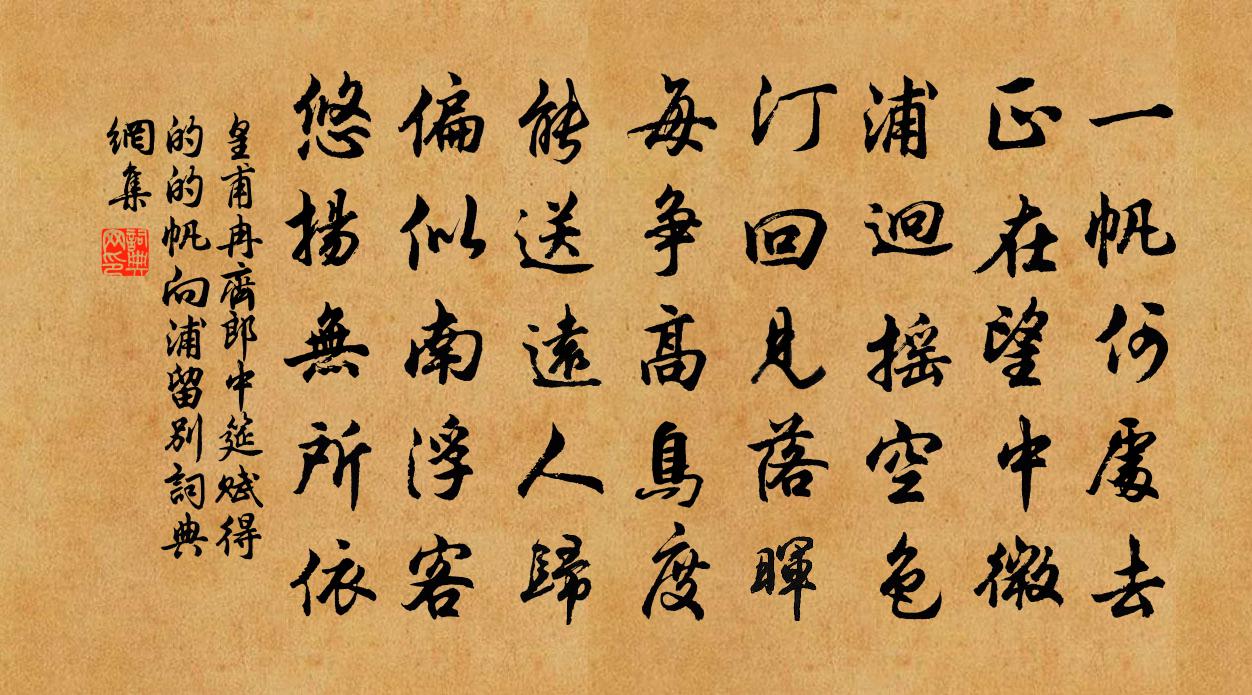 一帆何處去
正在望中微
浦迥搖空色
汀回見落暉
每爭高鳥度
能送遠人歸
偏似南浮客
悠揚無所依
皇甫冉齊郎中筵賦得
的的帆向浦留別詞典
網集
詞典網印